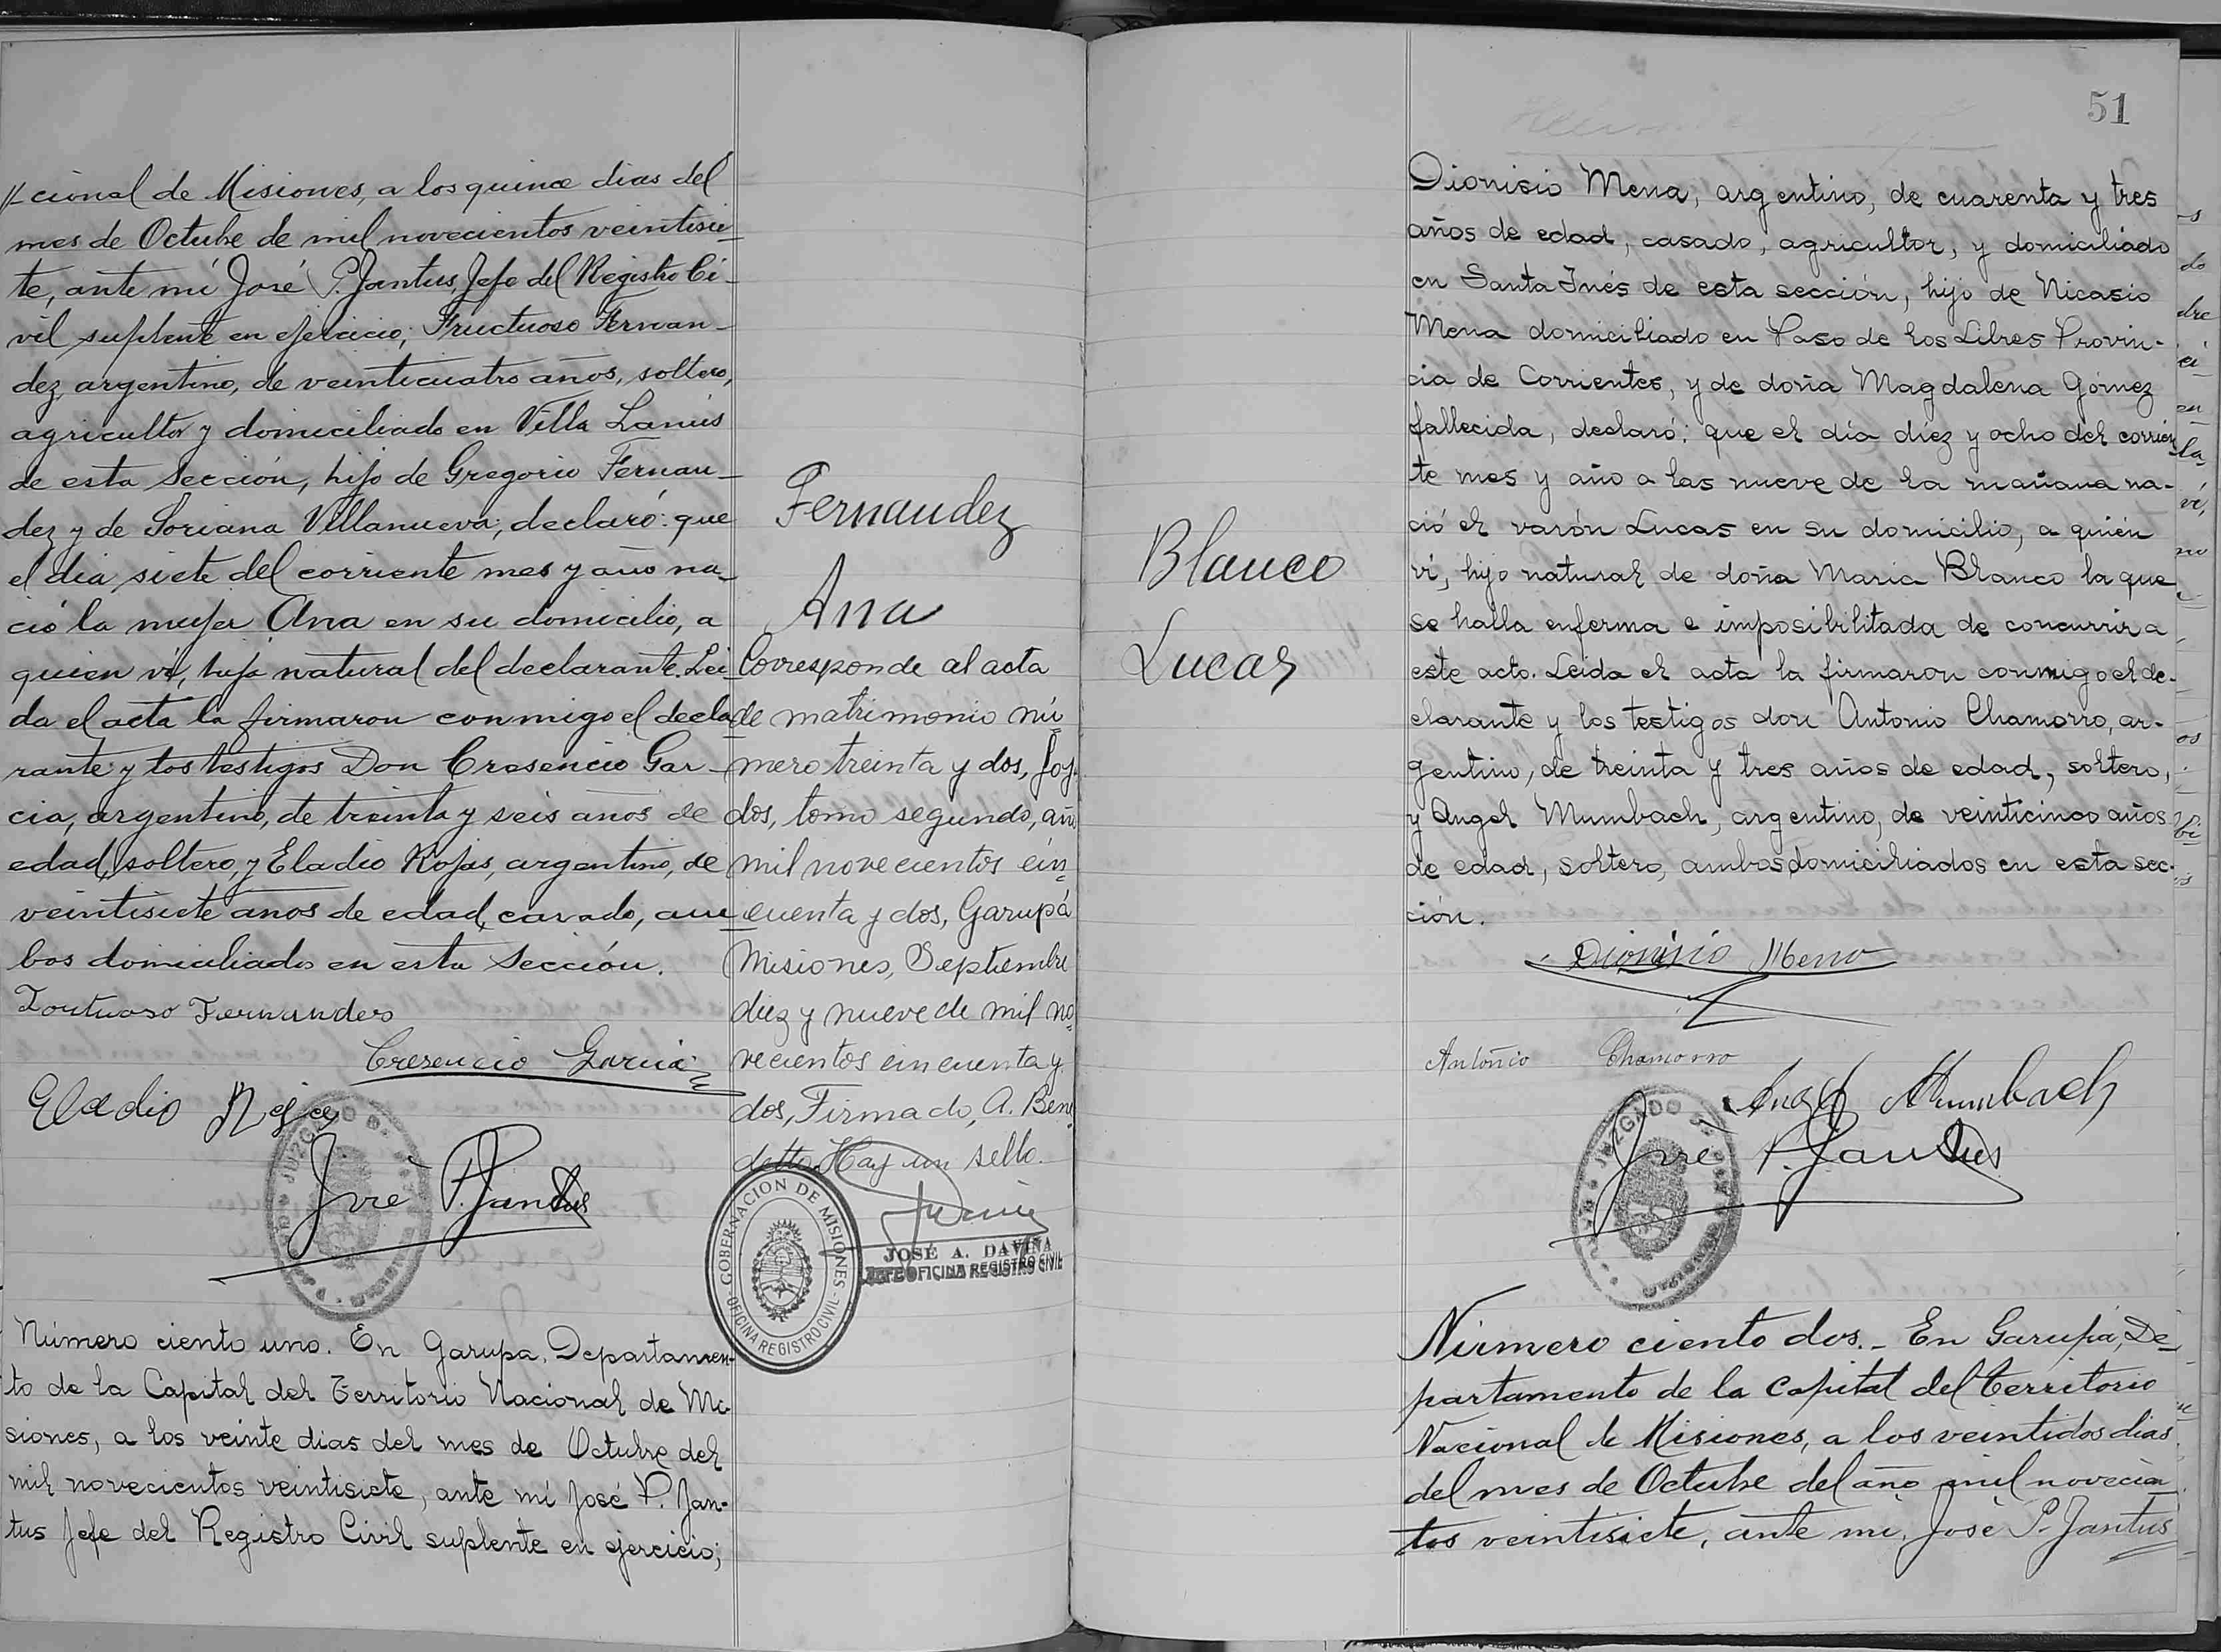 cional de Misiones, a los quince dias del
mes de Octubre de mil novecientos veintisie-
te, ante mi José P. Jantus, Jefe del Registro Ci-
vil suplente en ejercicio; Fructuoso Fernan-
dez, argentino, de veinticuatro años, soltero,
agricultor y domiciliado en Villa Lanús
de esta Sección, hijo de Gregorio Fernan-
dez y de Soriana Villanueva; declaró: que
el dia siete del corriente mes y año na-
ció la mujer Ana en su domicilio, a
quien vi, hija natural del declarante. Lei-
da el acta la firmaron conmigo el decla-
rante y los testigos Don Cresencio Gar-
cia, argentino, de treinta y seis años de
edad, soltero, y Eladio Rojas, argentino, de
veintisiete años de edad, casado, am-
bos domiciliados en esta Sección.
Fernandes
Cresencio Garcia
Eladio Rojas
José P. Jantus
Número ciento uno. En Garupa, Departamen-
to de la Capital del Territorio Nacional de Mi-
siones, a los veinte dias del mes de Octubre del
mil novecientos veintisiete, ante mi José P. Jan-
tus Jefe del Registro Civil suplente en ejercicio;
Fernandez
Ana
Corresponde al acta
de matrimonio nú-
mero treinta y dos, foj.
dos, tomo segundo, año
mil novecientos cin-
cuenta y dos, Garupá
Misiones, Septiembre
diez y nueve de mil no-
vecientos cincuenta y
dos, Firmado, A. Bene-
detto. Hay un sello.
GOBERNACION DE MISIONES
OFICINA REGISTRO CIVIL
JOSÉ A. DAVIÑA
JEFE OFICINA REGISTRO CIVIL
Blanco
Lucas
51
Dionisio Mena, argentino, de cuarenta y tres
años de edad, casado, agricultor, y domiciliado
en Santa Inés de esta sección, hijo de Nicasio
Mena domiciliado en Paso de los Libres Provin-
cia de Corrientes, y de doña Magdalena Gómez
fallecida, declaró: que el día diez y ocho del corrien-
te mes y año a las nueve de la mañana na-
ció el varón Lucas en su domicilio, a quién
ví, hijo natural de doña Maria Blanco la que
se halla enferma e imposibilitada de concurrir a
este acto. Leida el acta la firmaron conmigo el de-
clarante y los testigos don Antonio Chamorro, ar-
gentino, de treinta y tres años de edad, soltero,
y Angel Mumbach, argentino, de veinticinco años
de edad, soltero, ambos domiciliados en esta sec-
ción.
Dionisio Mena
Antoñio Chamorro
Angel Mumbach
José P. Jantus
Número ciento dos.- En Garupá, De-
partamento de la Capital del Territorio
Nacional de Misiones, a los veintidos dias
del mes de Octubre del año mil novecien-
tos veintisiete, ante mi, José P. Jantus